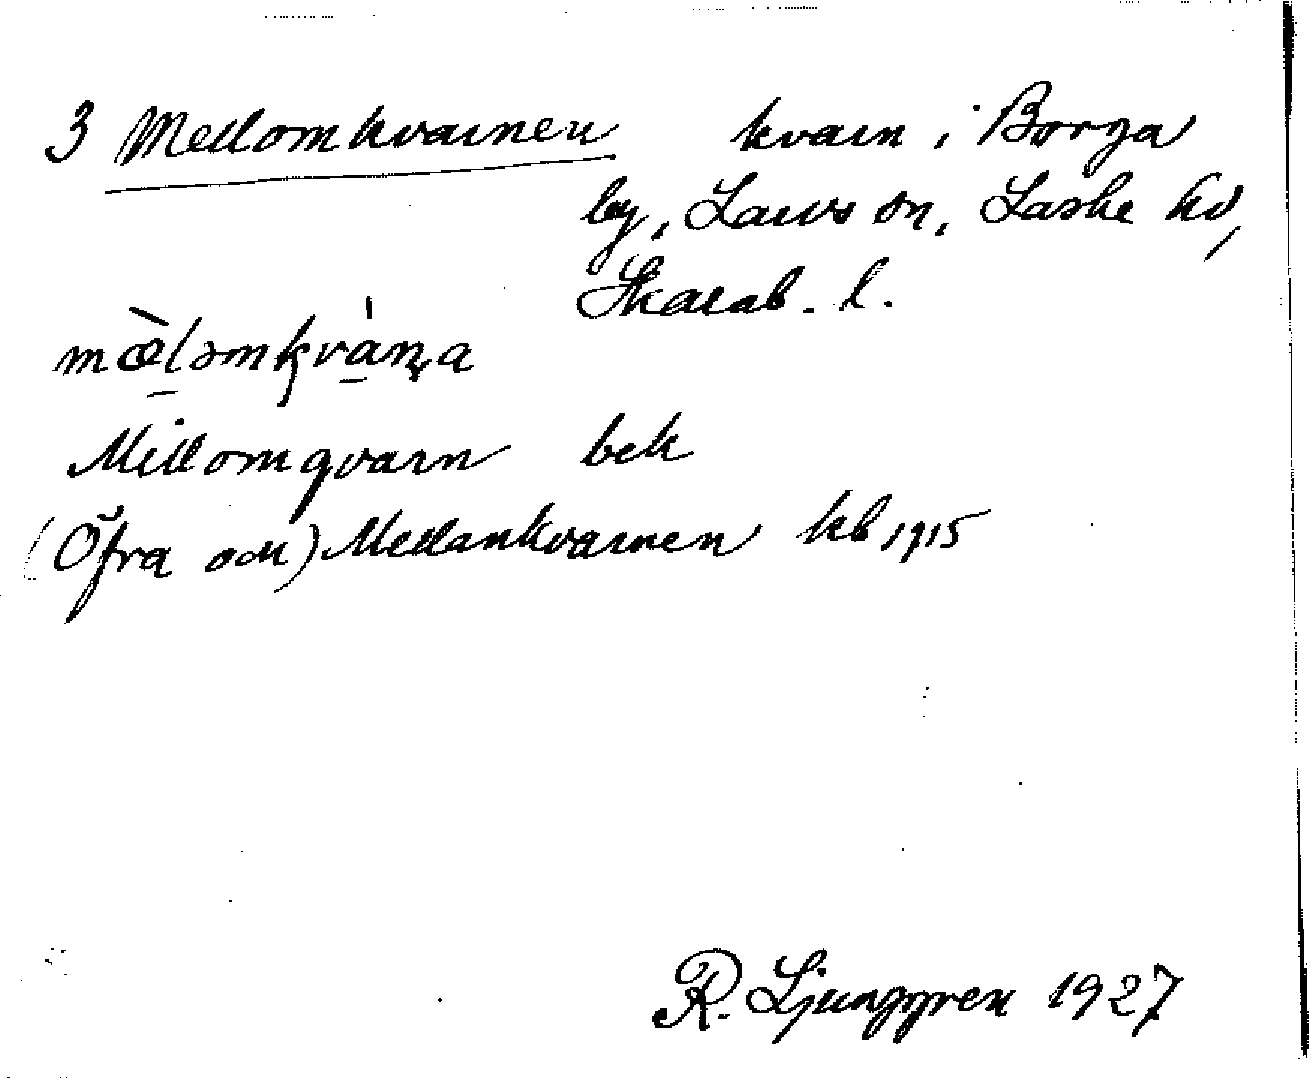 3 Mellomkvarnen kvarn i Borga
by, Larvs sn, Laske hd,
Skarab. l.
mæ̀lomkvàṇa
Mellomqvarn bek
(Öfra och) Mellankvarnen kb 1915
R. Ljunggren 1927